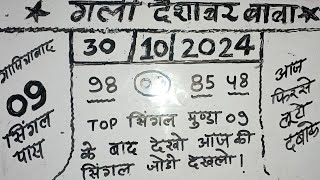 ★ गली देशावर बाबा ★
30/10/2024
गाजियाबाद
09
सिंगल
पास
98 09 85 48
TOP सिंगल मुण्डा 09
के बाद देखो आज की
सिंगल जोडी देखलो!
आज
फिर से
लाये
दबाके